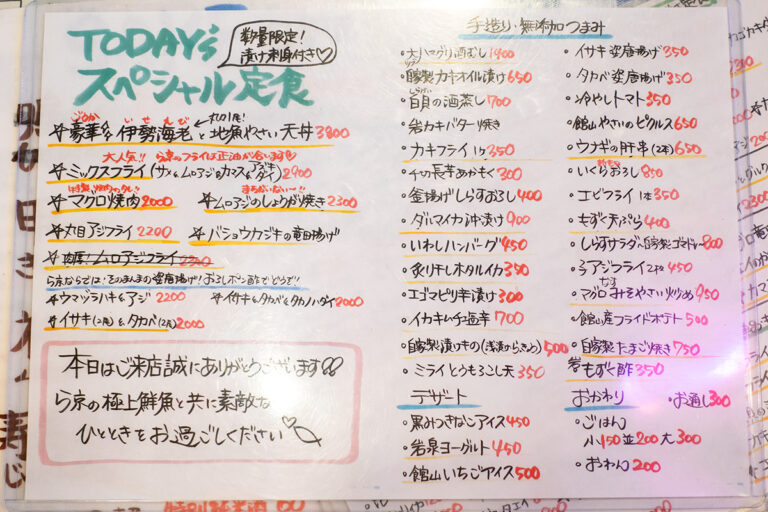 TODAY's
スペシャル定食
数量限定!
漬け刺身付き♡
ごうか いせえび
丸ごと1尾!
豪華な伊勢海老と地魚やさい天丼 3800
大人気!! ら京のフライは正油が合います
ミックスフライ(サメ&ムロアジ&カマス&アジ&ダイ) 2900
マグロ焼肉 2000
ムロアジのしょうが焼き 2300
丸目アジフライ 2200
バショウカジキの竜田揚げ
肉厚!ムロアジフライ 2300
ら京ならでは!そのまんまの姿唐揚げ!おろしポン酢でどうぞ!
ウマヅラハギ&アジ 2200
イサキ&タカベ&タカノハダイ 2000
イサキ(2尾)&タカベ(2尾) 2000
本日はご来店誠にありがとうございます♡♡
ら京の極上鮮魚と共に素敵な
ひとときをお過ごしください♡
手造り・無添加つまみ
・大ハマグリ酒むし 1400
・自家製カキオイル漬け 650
・白貝の酒蒸し 700
・岩カキバター焼き
・カキフライ1ヶ 350
・千の長芋あかもく 300
・釜揚げしらすおろし 400
・ダルマイカ沖漬け 900
・いわしハンバーグ 450
・炙り干しホタルイカ 350
・エゴマピリ辛漬け 300
・イカキムチ塩辛 700
・自家製漬けもの(浅漬けらっきょう) 500
・ミライとうもろこし天 350
デザート
・黒みつきなこアイス 450
・岩泉ヨーグルト 450
・館山いちごアイス 500
・イサキ姿唐揚げ 350
・タカベ姿唐揚げ 350
・冷やしトマト 350
・館山やさいのピクルス 650
・ウナギの肝串(2本) 650
・いくらおろし 850
・エビフライ1本 350
・もずく天ぷら 400
・しらすサラダ〜自家製ゴマドレ〜 800
・アジフライ2ヶ 450
・マグロみそやさい炒め 950
・館山産フライドポテト 500
・自家製たまご焼き 750
岩もずく酢 350
おかわり
・お通し 300
・ごはん
小150 並200 大300
・おわん 200